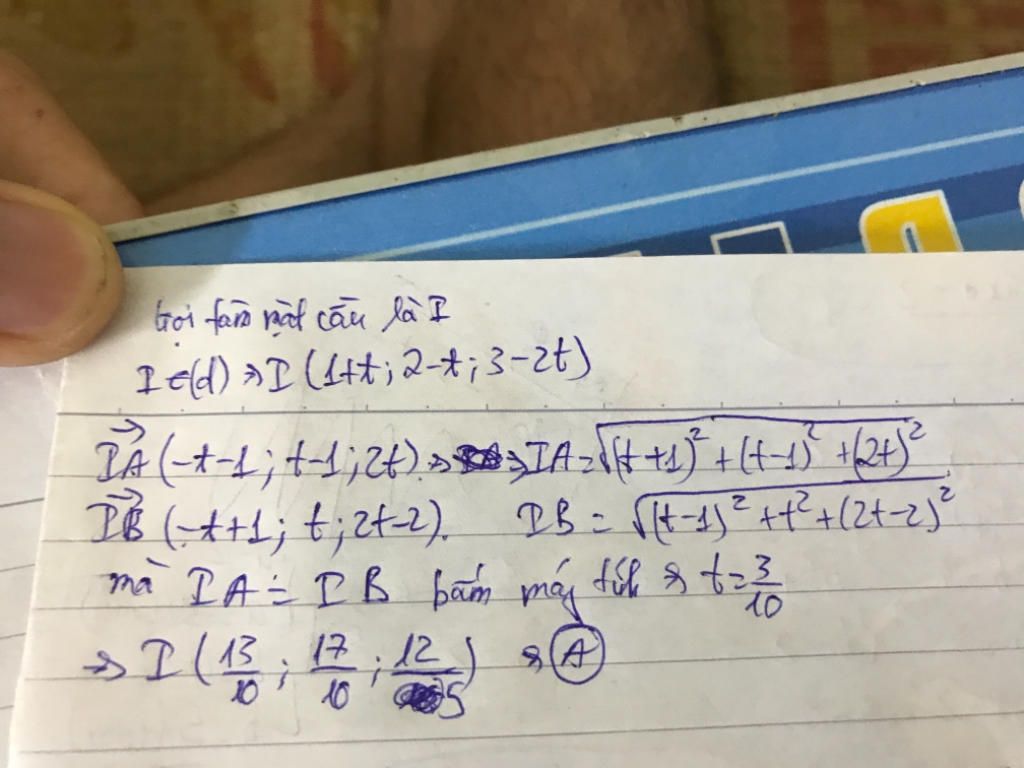 Gọi tâm mặt cầu là I
I ∈ (d) ⇒ I (1+t; 2-t; 3-2t)
IA (-t-1; t-1; 2t) ⇒ ⇒ IA = √(t+1)² + (t-1)² + (2t)²
IB (-t+1; t; 2t-2). IB = √(t-1)² + t² + (2t-2)²
mà IA = IB bấm máy tính ⇒ t = 3/10
⇒ I (13/10; 17/10; 12/5) ⇒ A